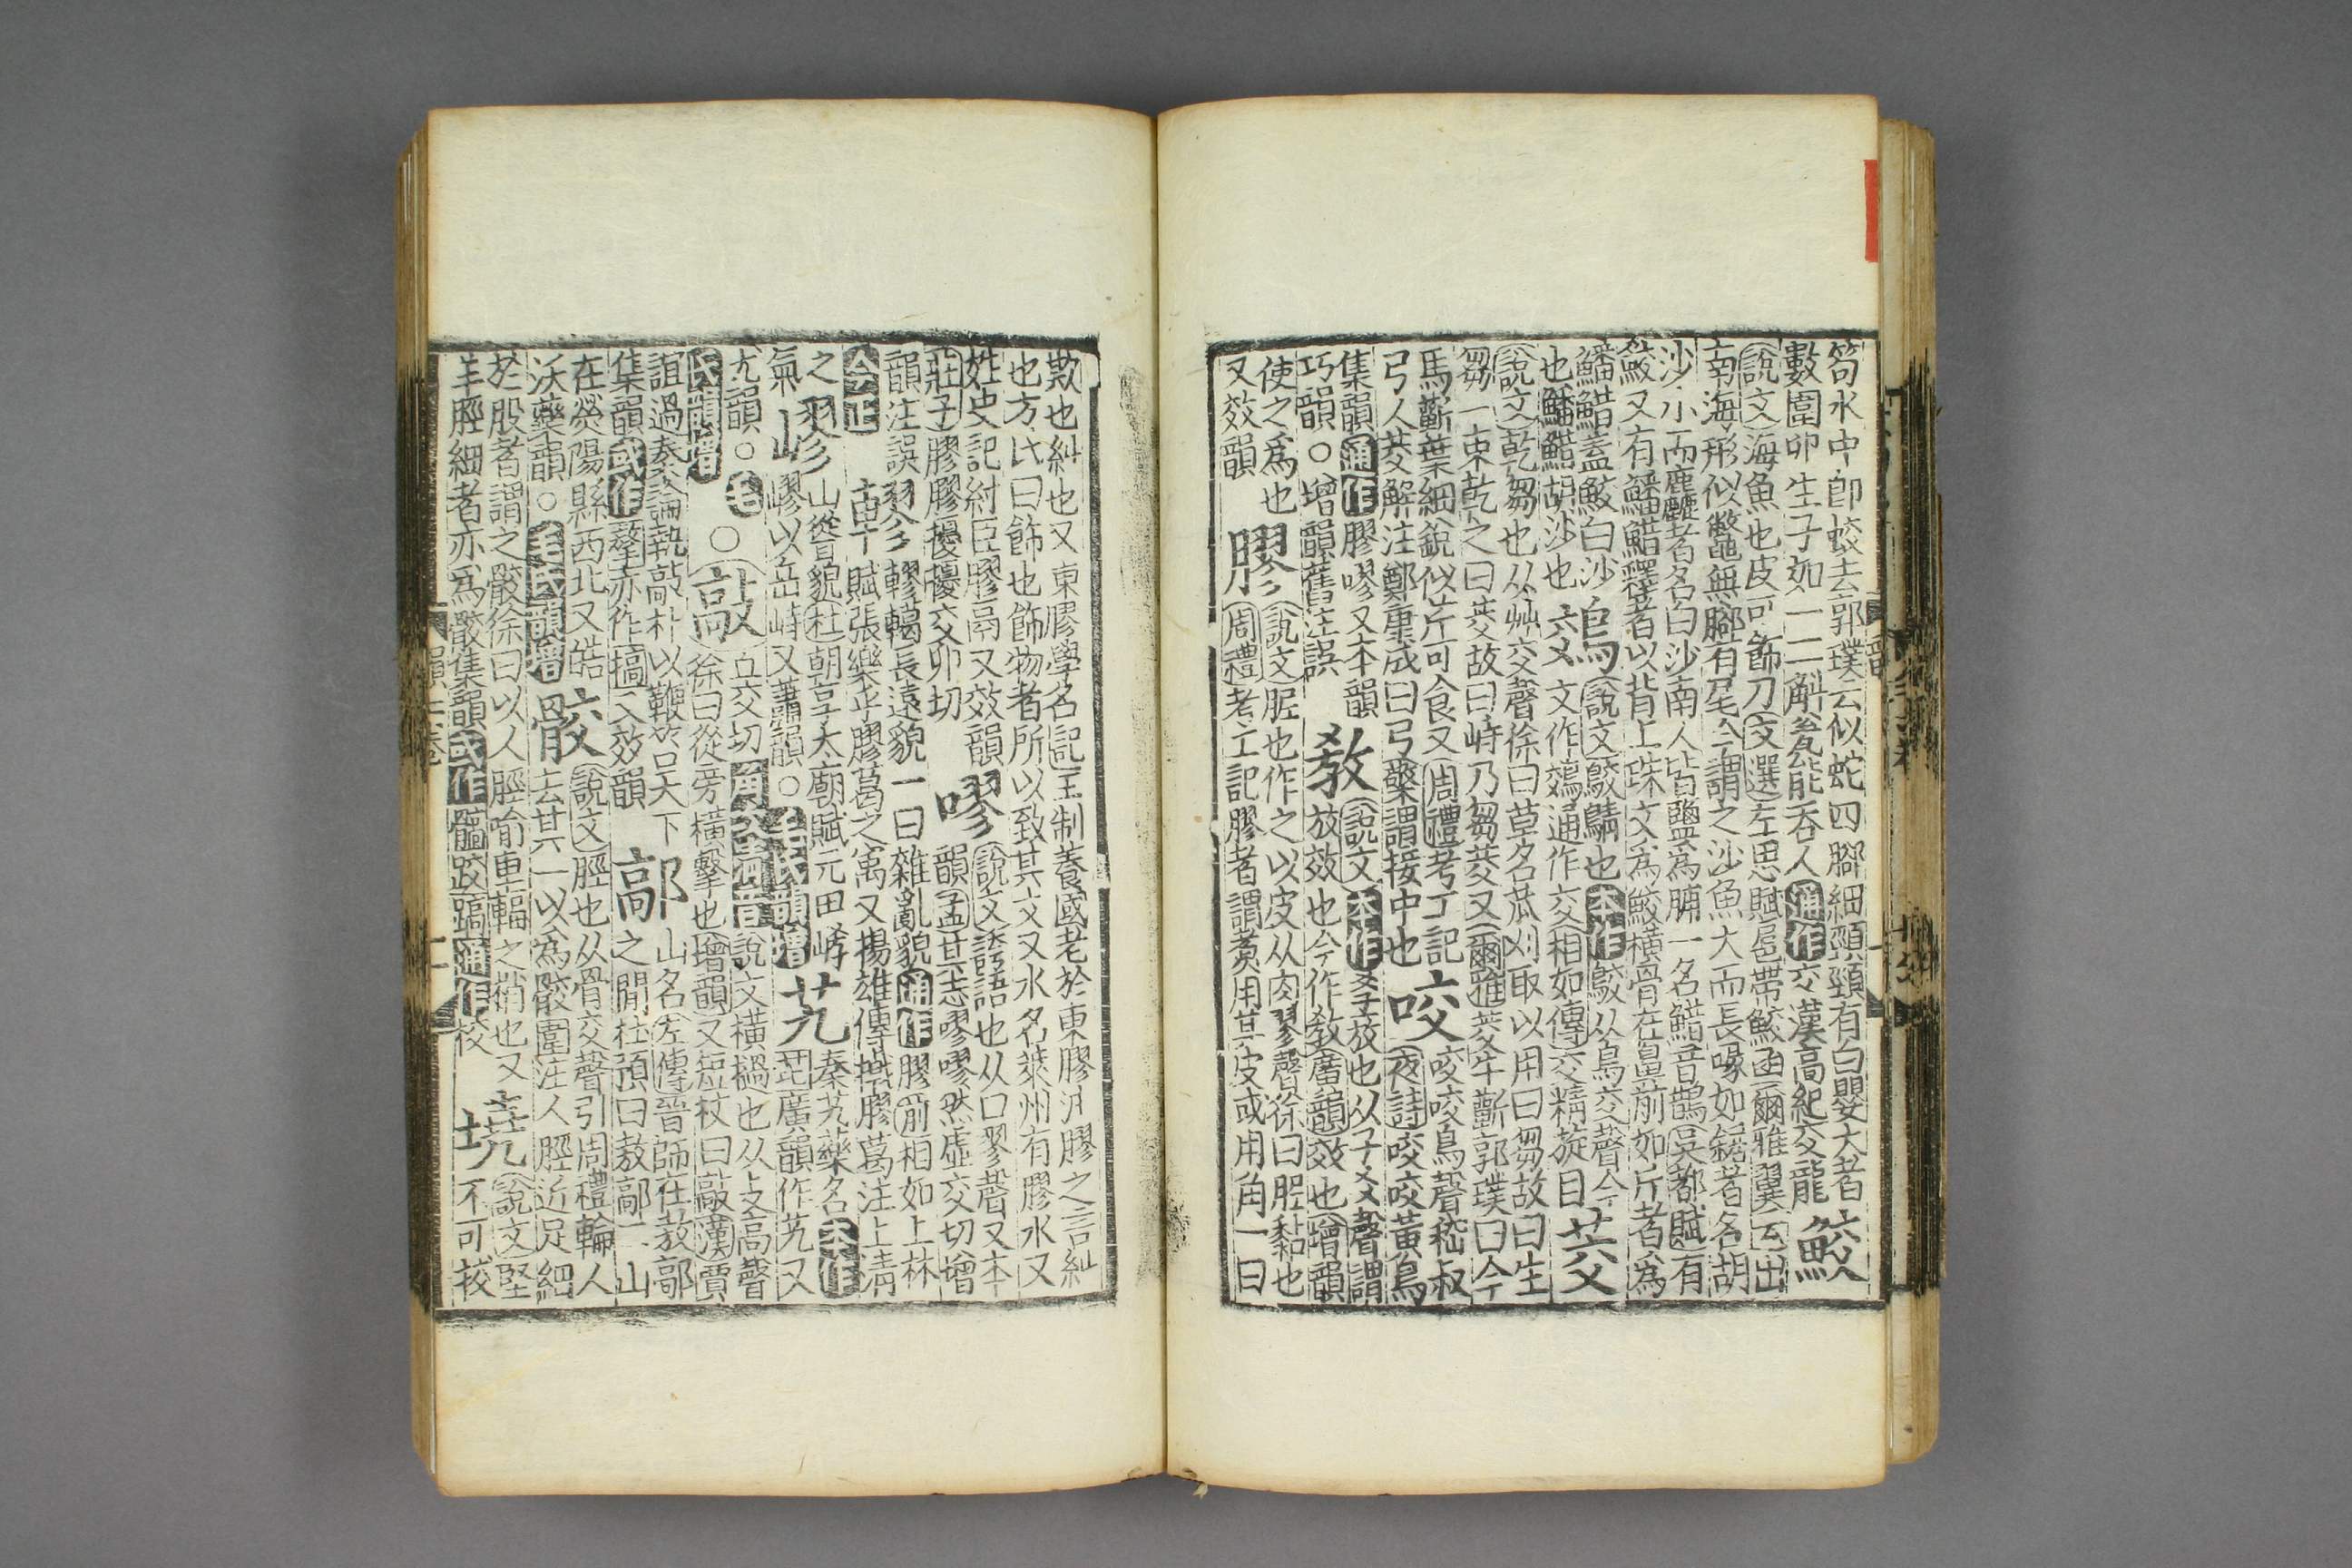 笱水中卽蛟去郭璞云似蛇四腳細頸頸有白嬰大者
數圍卵生子如一二斛瓮能吞人通作交漢高紀交龍鮫
說文海魚也皮可飾刀文選左思賦扈帶鮫函爾雅翼云出
南海形似鼈無腳有尾今謂之沙魚大而長喙如鋸者名胡
沙小而麤者名白沙南人皆鹽爲脯一名鯌音鵲吳都賦有
鮫又有鱕鯌釋者以背上珠文爲鮫橫骨在鼻前如斤者爲
鱕鯌蓋鮫白沙
也鱕鯌胡沙也
鵁說文鵁鶄也本作鵁从鳥交聲今
文作鵁通作交相如傳交精旋目
茭
說文乾芻也从艸交聲徐曰草名苽刈取以用曰芻故曰生
芻一束乾之曰茭故曰峙乃芻茭又爾雅茭牛蘄郭璞曰今
馬蘄葉細銳似芹可食又周禮考工記
弓人茭解注鄭康成曰弓檠謂接中也
咬
咬咬鳥聲嵇叔
夜詩咬咬黃鳥
集韻通作膠嘐又本韻
巧韻○增韻舊注誤
教
說文本作𡥈放也从子爻聲謂
放效也今作教廣韻效也增韻
使之爲也
又效韻
膠
說文昵也作之以皮从肉翏聲徐曰膠黏也
周禮考工記膠者謂煑用其皮或用角一曰
欺也糾也又東膠學名記王制養國老於東膠注膠之言糾
也方氏曰飾也飾物者所以致其交又水名萊州有膠水又
姓史記紂臣膠鬲又效韻
莊子膠膠擾擾交卯切
嘐
說文誇語也从口翏聲又本
韻孟其志嘐嘐然虛交切增
韻注誤
會正
轇轇轕長遠貌一曰雜亂貌通作膠前相如上林
賦張樂乎膠葛之寓又揚雄傳撠膠葛注上淸
之
氣
嵺山聳貌杜朝享太廟賦元田㟉
嵺以岳峙又蕭韻○毛氏韻增
艽
秦艽藥名本作
𦬊廣韻作艽又
尤韻○毛
氏韻增
○敲丘交切角次淸音說文橫檛也从攴高聲
徐曰從旁橫擊也增韻又短杖曰敲漢賈
誼過秦論執敲朴以鞭笞天下
集韻或作㪣亦作搞又效韻
鄗
山名左傳晉師在敖鄗
之間杜預曰敖鄗二山
在熒陽縣西北又皓
沃藥韻○毛氏韻增
骹
說文脛也从骨交聲引周禮輪人
去其一以爲骹圍注人脛近足細
於股者謂之骹徐曰以人脛喻車輻之𥮾也又
羊脛細者亦爲骹集韻或作䯫跤蹻通作校
墝
說文堅
不可拔